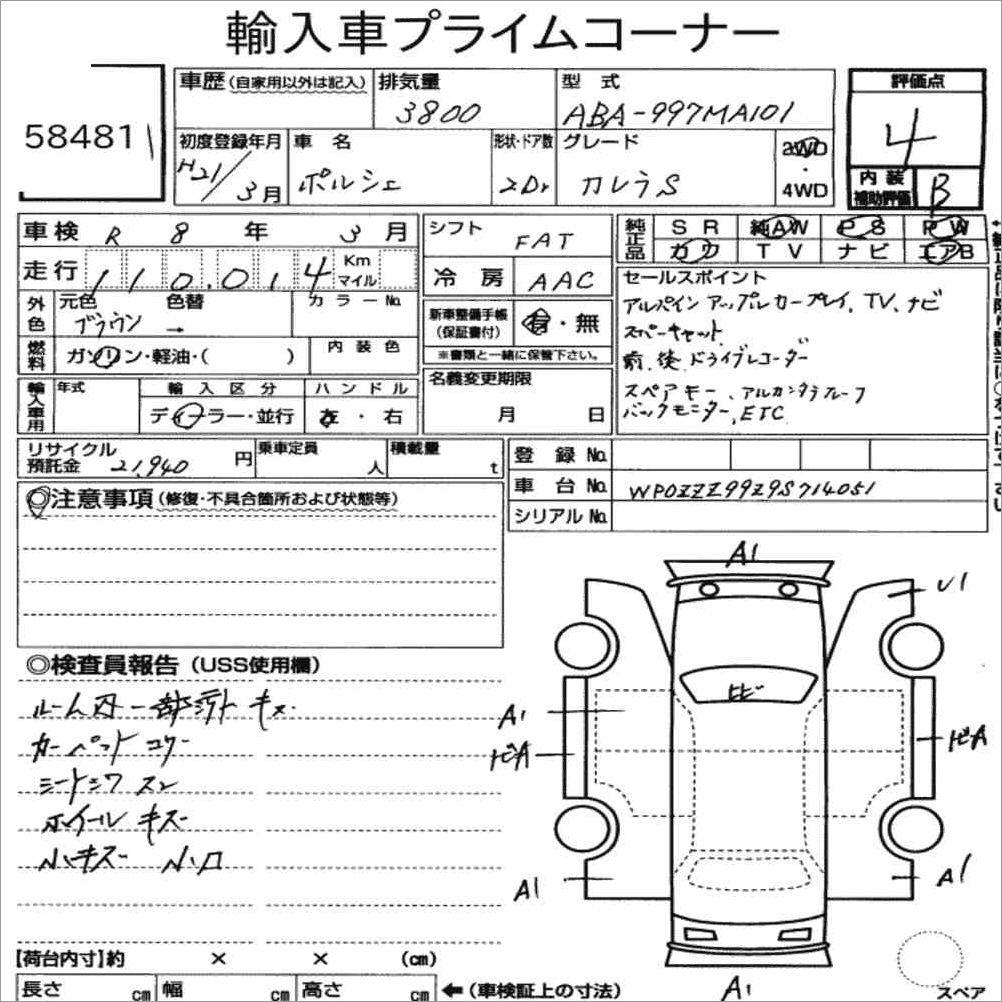 輸入車プライムコーナー
58481
車歴(自家用以外は記入) 排気量 3800 型式 ABA-997MA101
評価点 4
初度登録年月 H21/3月 車名 ポルシェ 形状・ドア数 2Dr グレード カレラS 2WD・4WD
内装補助評価 B
車検 R 8年 3月
シフト FAT
純正品 SR 純AW PS PW
カワ TV ナビ エアB
走行 110,014 Km マイル
冷房 AAC
セールスポイント
アルパイン アップルカープレイ, TV, ナビ
外色 元色 ブラウン 色替 → カラーNo.
新車整備手帳(保証書付) 有・無
スペーキャット
※書類と一緒に保管下さい。
前、後 ドライブレコーダー
燃料 ガソリン・軽油・( ) 内装色
名義変更期限
月 日
スペアキー, アルカンタラルーフ
バックモニター, ETC
輸入車用 年式 輸入区分 ハンドル
ディーラー・並行 左・右
リサイクル預託金 21,940円 乗車定員 人 積載量 t
登録No.
車台No. WP0ZZZ99Z9S714051
シリアルNo.
◎注意事項(修復・不具合箇所および状態等)
◎検査員報告(USS使用欄)
ルーム内一部汚れ キズ
カーペット コゲ
シートシワ スレ
ホイール キズ
小キズ 小凹
A1
U1
ヒビ
A1
トビA
トビA
A1
A1
A1
スペア
【荷台内寸】約 × × (cm)
長さ cm 幅 cm 高さ cm ←(車検証上の寸法)